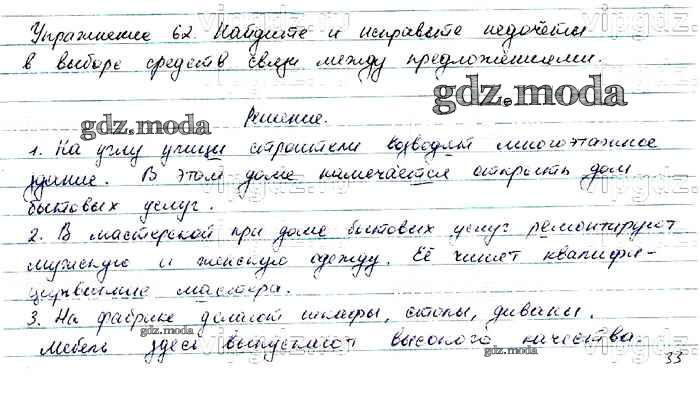 Упражнение 62. Найдите и исправьте недочёты
в выборе средств связи между предложениями.
gdz.moda
gdz.moda
Решение.
1. На углу улицы строители возводят многоэтажное
здание. В этом доме намечается открыть дом
бытовых услуг.
2. В мастерской при доме бытовых услуг ремонтируют
мужскую и женскую одежду. Её чистят квалифи-
цированные мастера.
3. На фабрике делают шкафы, столы, диваны.
gdz.moda
Мебель здесь выпускают высокого качества.
gdz.moda
33